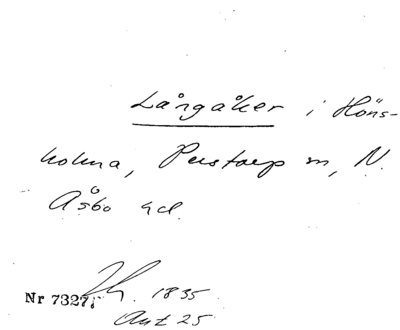 Långåker i Höns-
holma, Perstorp sn, N.
Åsbo hd.
Nr 7327, 1835
Ant 25